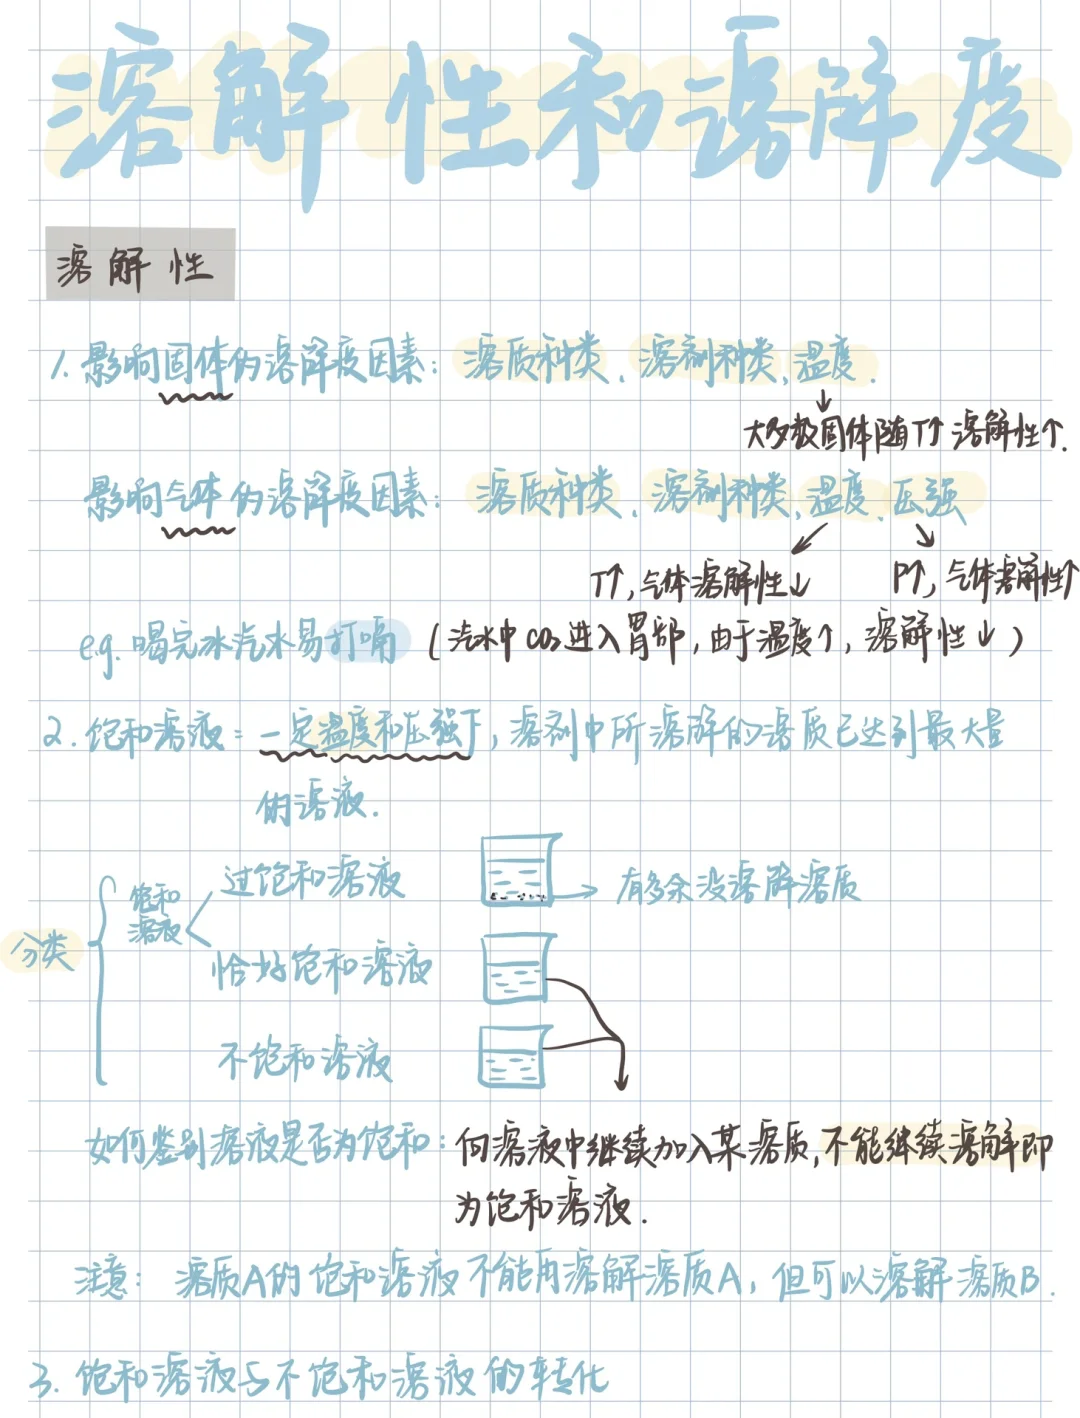 溶解性和溶解度
溶解性
1. 影响固体的溶解度因素：溶质种类、溶剂种类、温度.
大多数固体随T↑溶解性↑.
影响气体的溶解度因素：溶质种类、溶剂种类、温度、压强
T↑,气体溶解性↓ P↑,气体溶解性↑
e.g. 喝完冰汽水易打嗝 (汽水中CO₂进入胃部,由于温度↑,溶解性↓)
2. 饱和溶液：一定温度和压强下,溶剂中所溶解的溶质已达到最大量
的溶液.
分类
饱和
溶液
过饱和溶液 → 有多余没溶解溶质
恰好饱和溶液
不饱和溶液
如何鉴别溶液是否为饱和：向溶液中继续加入某溶质,不能继续溶解即
为饱和溶液.
注意：溶质A的饱和溶液不能再溶解溶质A,但可以溶解溶质B.
3. 饱和溶液与不饱和溶液的转化